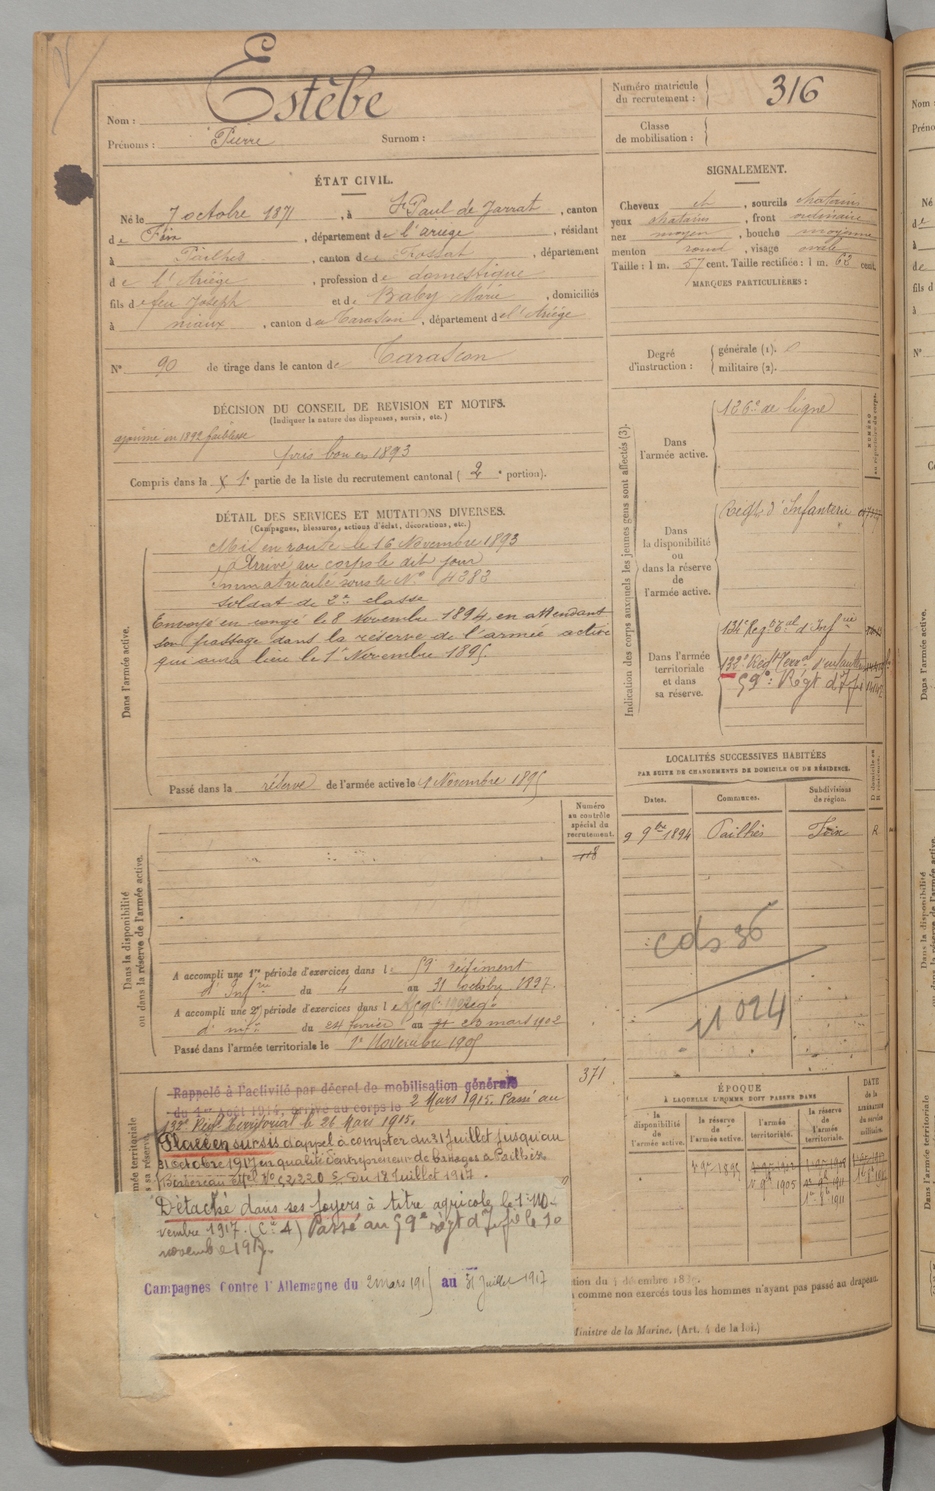 Nom : Estèbe
Prénoms : Pierre Surnom :
Numéro matricule du recrutement : 316
Classe de mobilisation :
ÉTAT CIVIL.
Né le 7 octobre 1871, à St Paul de Jarrat, canton
de Foix, département de l'ariege, résidant
à Pailhès, canton de Fossat, département
de l'Ariége, profession de domestique
fils de feu Joseph et de Baby Marie, domiciliés
à niaux, canton de Tarascon, département de l'Ariége
N° 90 de tirage dans le canton de Tarascon
SIGNALEMENT.
Cheveux ch, sourcils chatains
yeux chatains, front ordinaire
nez moyen, bouche moyenne
menton rond, visage ovale
Taille : 1 m. 57 cent. Taille rectifiée : 1 m. 62 cent.
MARQUES PARTICULIÈRES :
Degré d'instruction :
générale (1).
militaire (2).
DÉCISION DU CONSEIL DE REVISION ET MOTIFS.
(Indiquer la nature des dispenses, sursis, etc.)
ajourné en 1892 faiblesse
pris bon en 1893
Compris dans la 1e partie de la liste du recrutement cantonal ( 2 e portion).
DÉTAIL DES SERVICES ET MUTATIONS DIVERSES.
(Campagnes, blessures, actions d'éclat, décorations, etc.)
Dans l'armée active.
Mis en route le 16 Novembre 1893
Arrivé au corps le dit jour
Immatriculé sous le N° 4383
soldat de 2e classe
Envoyé en congé le 8 Novembre 1894 en attendant
son passage dans la réserve de l'armée active
qui aura lieu le 1er Novembre 1895
Passé dans la réserve de l'armée active le 1 Novembre 1895
Indication des corps auxquels les jeunes gens sont affectés (3).
Dans l'armée active.
126e de ligne
Dans la disponibilité ou dans la réserve de l'armée active.
Regt d'Infanterie
Dans l'armée territoriale et dans sa réserve.
134e Regt Tal d'Infrie
132e Regt Terral d'infanterie
59e Régt d'Infie
LOCALITÉS SUCCESSIVES HABITÉES
PAR SUITE DE CHANGEMENTS DE DOMICILE OU DE RÉSIDENCE.
Dates. Communes. Subdivisions de région.
9 9bre 1894 Pailhès Foix R
Numéro au contrôle spécial du recrutement.
118
Dans la disponibilité ou dans la réserve de l'armée active.
A accompli une 1re période d'exercices dans le 59e régiment
d'Infrie du 4 au 31 octobre 1897
A accompli une 2e période d'exercices dans le
d'inf. du 24 février au 23 mars 1902
Passé dans l'armée territoriale le 1er Novembre 1905
371
Rappelé à l'activité par décret de mobilisation générale
du 1er Août 1914, arrivé au corps le 2 Mars 1915. Passé au
132e Regt Territorial le 26 Mars 1915.
Placé en sursis d'appel à compter du 31 Juillet jusqu'au
31 octobre 1917 en qualité d'entrepreneur de battages à Pailhès.
Du 18 Juillet 1917.
Détaché dans ses foyers à titre agricole le 1er No-
vembre 1917. Passé au 59e régt d'Infie le 1e
novembre 1917.
Campagnes Contre l'Allemagne du 2 mars 1915 au 31 Juillet 1917
11024
ÉPOQUE
À LAQUELLE L'HOMME DOIT PASSER DANS
la disponibilité de l'armée active. la réserve de l'armée active. l'armée territoriale. la réserve de l'armée territoriale.
DATE de la LIBÉRATION du service militaire.
comme non exercés tous les hommes n'ayant pas passé au drapeau.
Ministre de la Marine. (Art. 4 de la loi.)